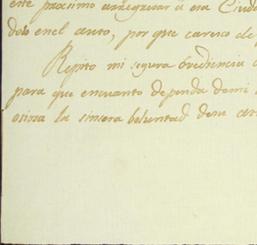 este proximo arreglar à esa Ciud
do en el auto, por que careco de
Repito mi segura ovediencia
para que en cuanto dependa demi
osima la sincera boluntad deun